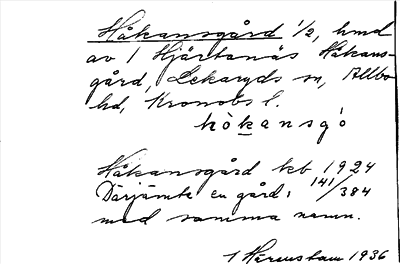 Håkansgård 1/2, hmd
av 1 Hjärtanäs Håkans-
gård, Lekaryds sn, Allbo
hd, Kronobs l.
hòkansgó
Håkansgård kb 1924
Därjämte en gård, 141/384
med samma namn.
1936